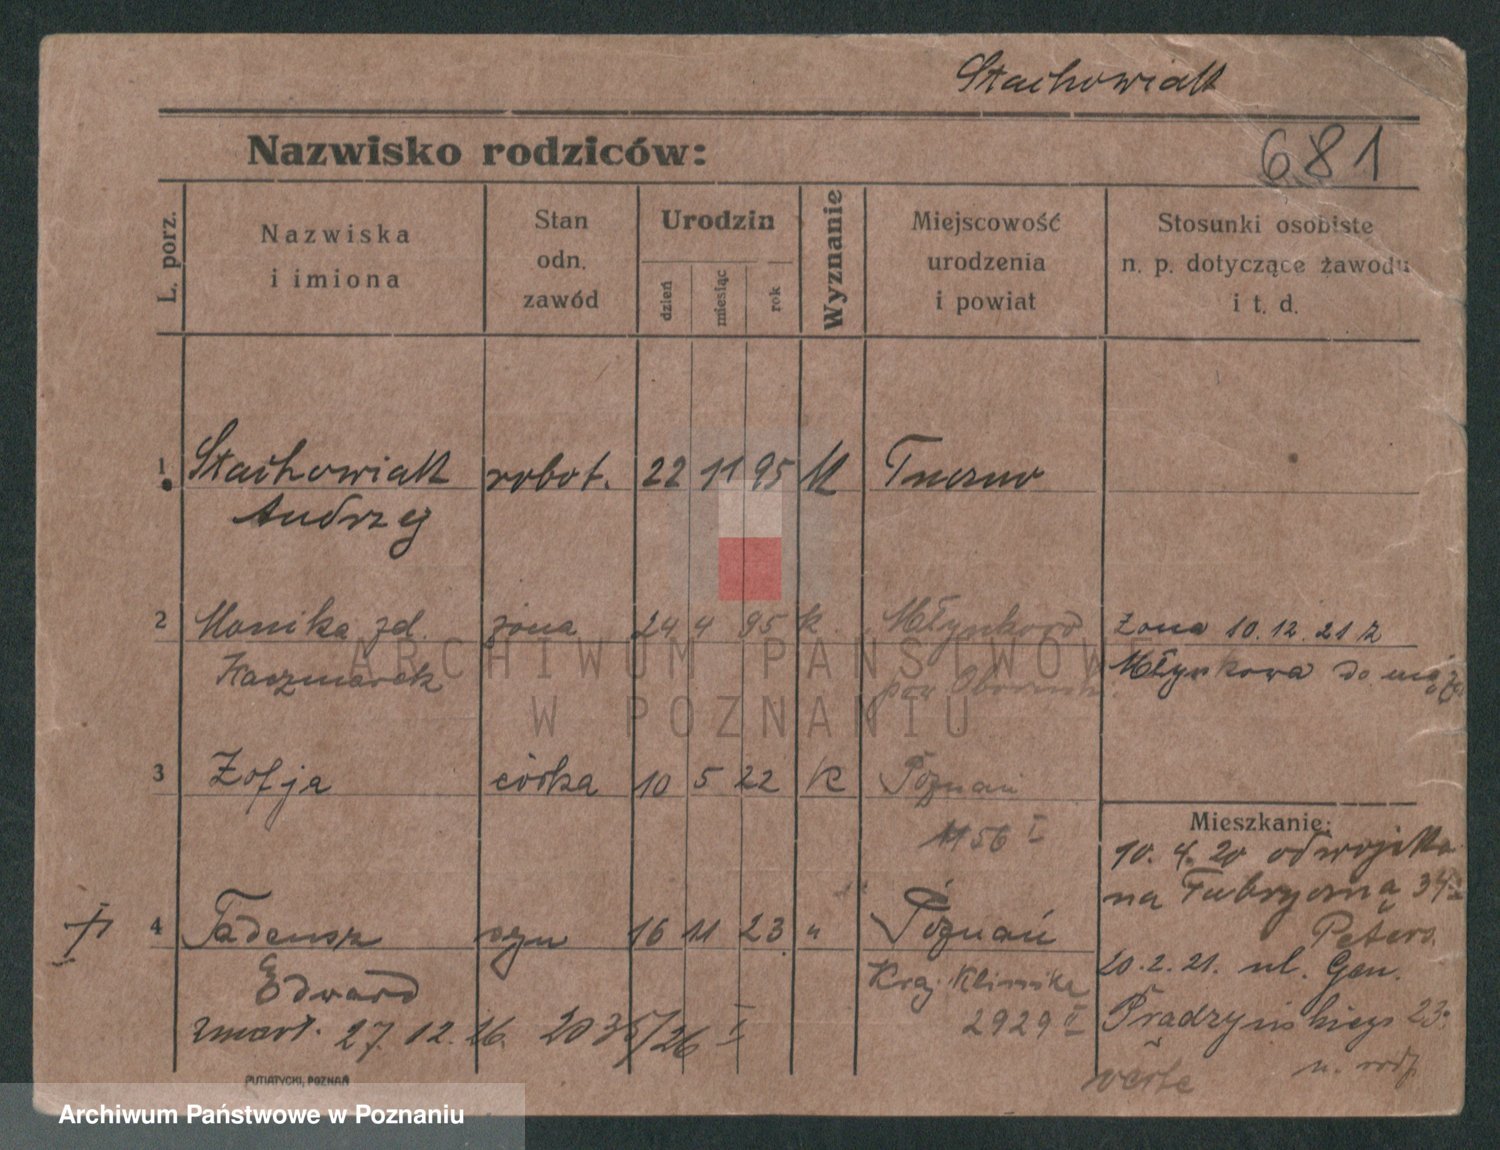 Stachowiak
Nazwisko rodziców:
681
L. porz.
Nazwiska
i imiona
Stan
odn.
zawód
Urodzin
dzień
miesiąc
rok
Wyznanie
Miejscowość
urodzenia
i powiat
Stosunki osobiste
n. p. dotyczące zawodu
i t. d.
1 Stachowiak robot. 22 11 95 K
Andrzej
2 Monika zd. żona 24 4 95 k. Młynkowo żona 10.12.21 z
Kaczmarek pow Obornik. Młynkowa do
3 Zofja córka 10 5 22 K Poznań
1156 I
Mieszkanie:
10.4.20 od wojska
na Fabryczną
4 Tadeusz syn 16 11 23 " Poznań Petera
Edward Kraj. Klinika 20.2.21. ul. Gen.
2929 II Prądzyńskiego 23
zmarł. 27.12.26. 2035/26 I
verte
PUTIATYCKI, POZNAŃ
ARCHIWUM PAŃSTWOWE
W POZNANIU
Archiwum Państwowe w Poznaniu